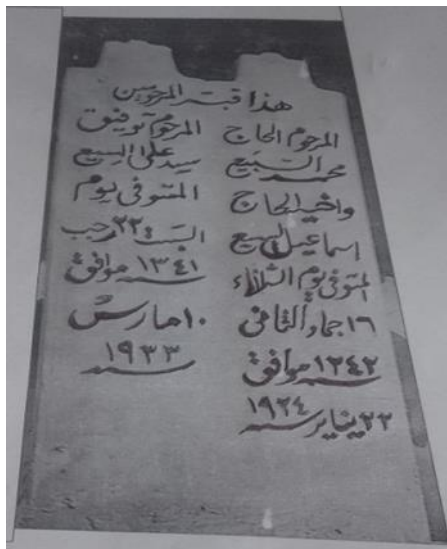 هذا قبر المرحومين
المرحوم الحاج
محمد السبيع
واخيه الحاج
اسماعيل السبيع
المتوفى يوم الثلاثاء
١٦ جماد الثاني
سنة ١٢٤٢ موافق
٢٢ يناير سنة ١٩٢٤
المرحوم توفيق
سيد على السبيع
المتوفى يوم
السبت ٢٢ رجب
سنة ١٣٤١ موافق
١٠ مارس
سنة ١٩٣٣